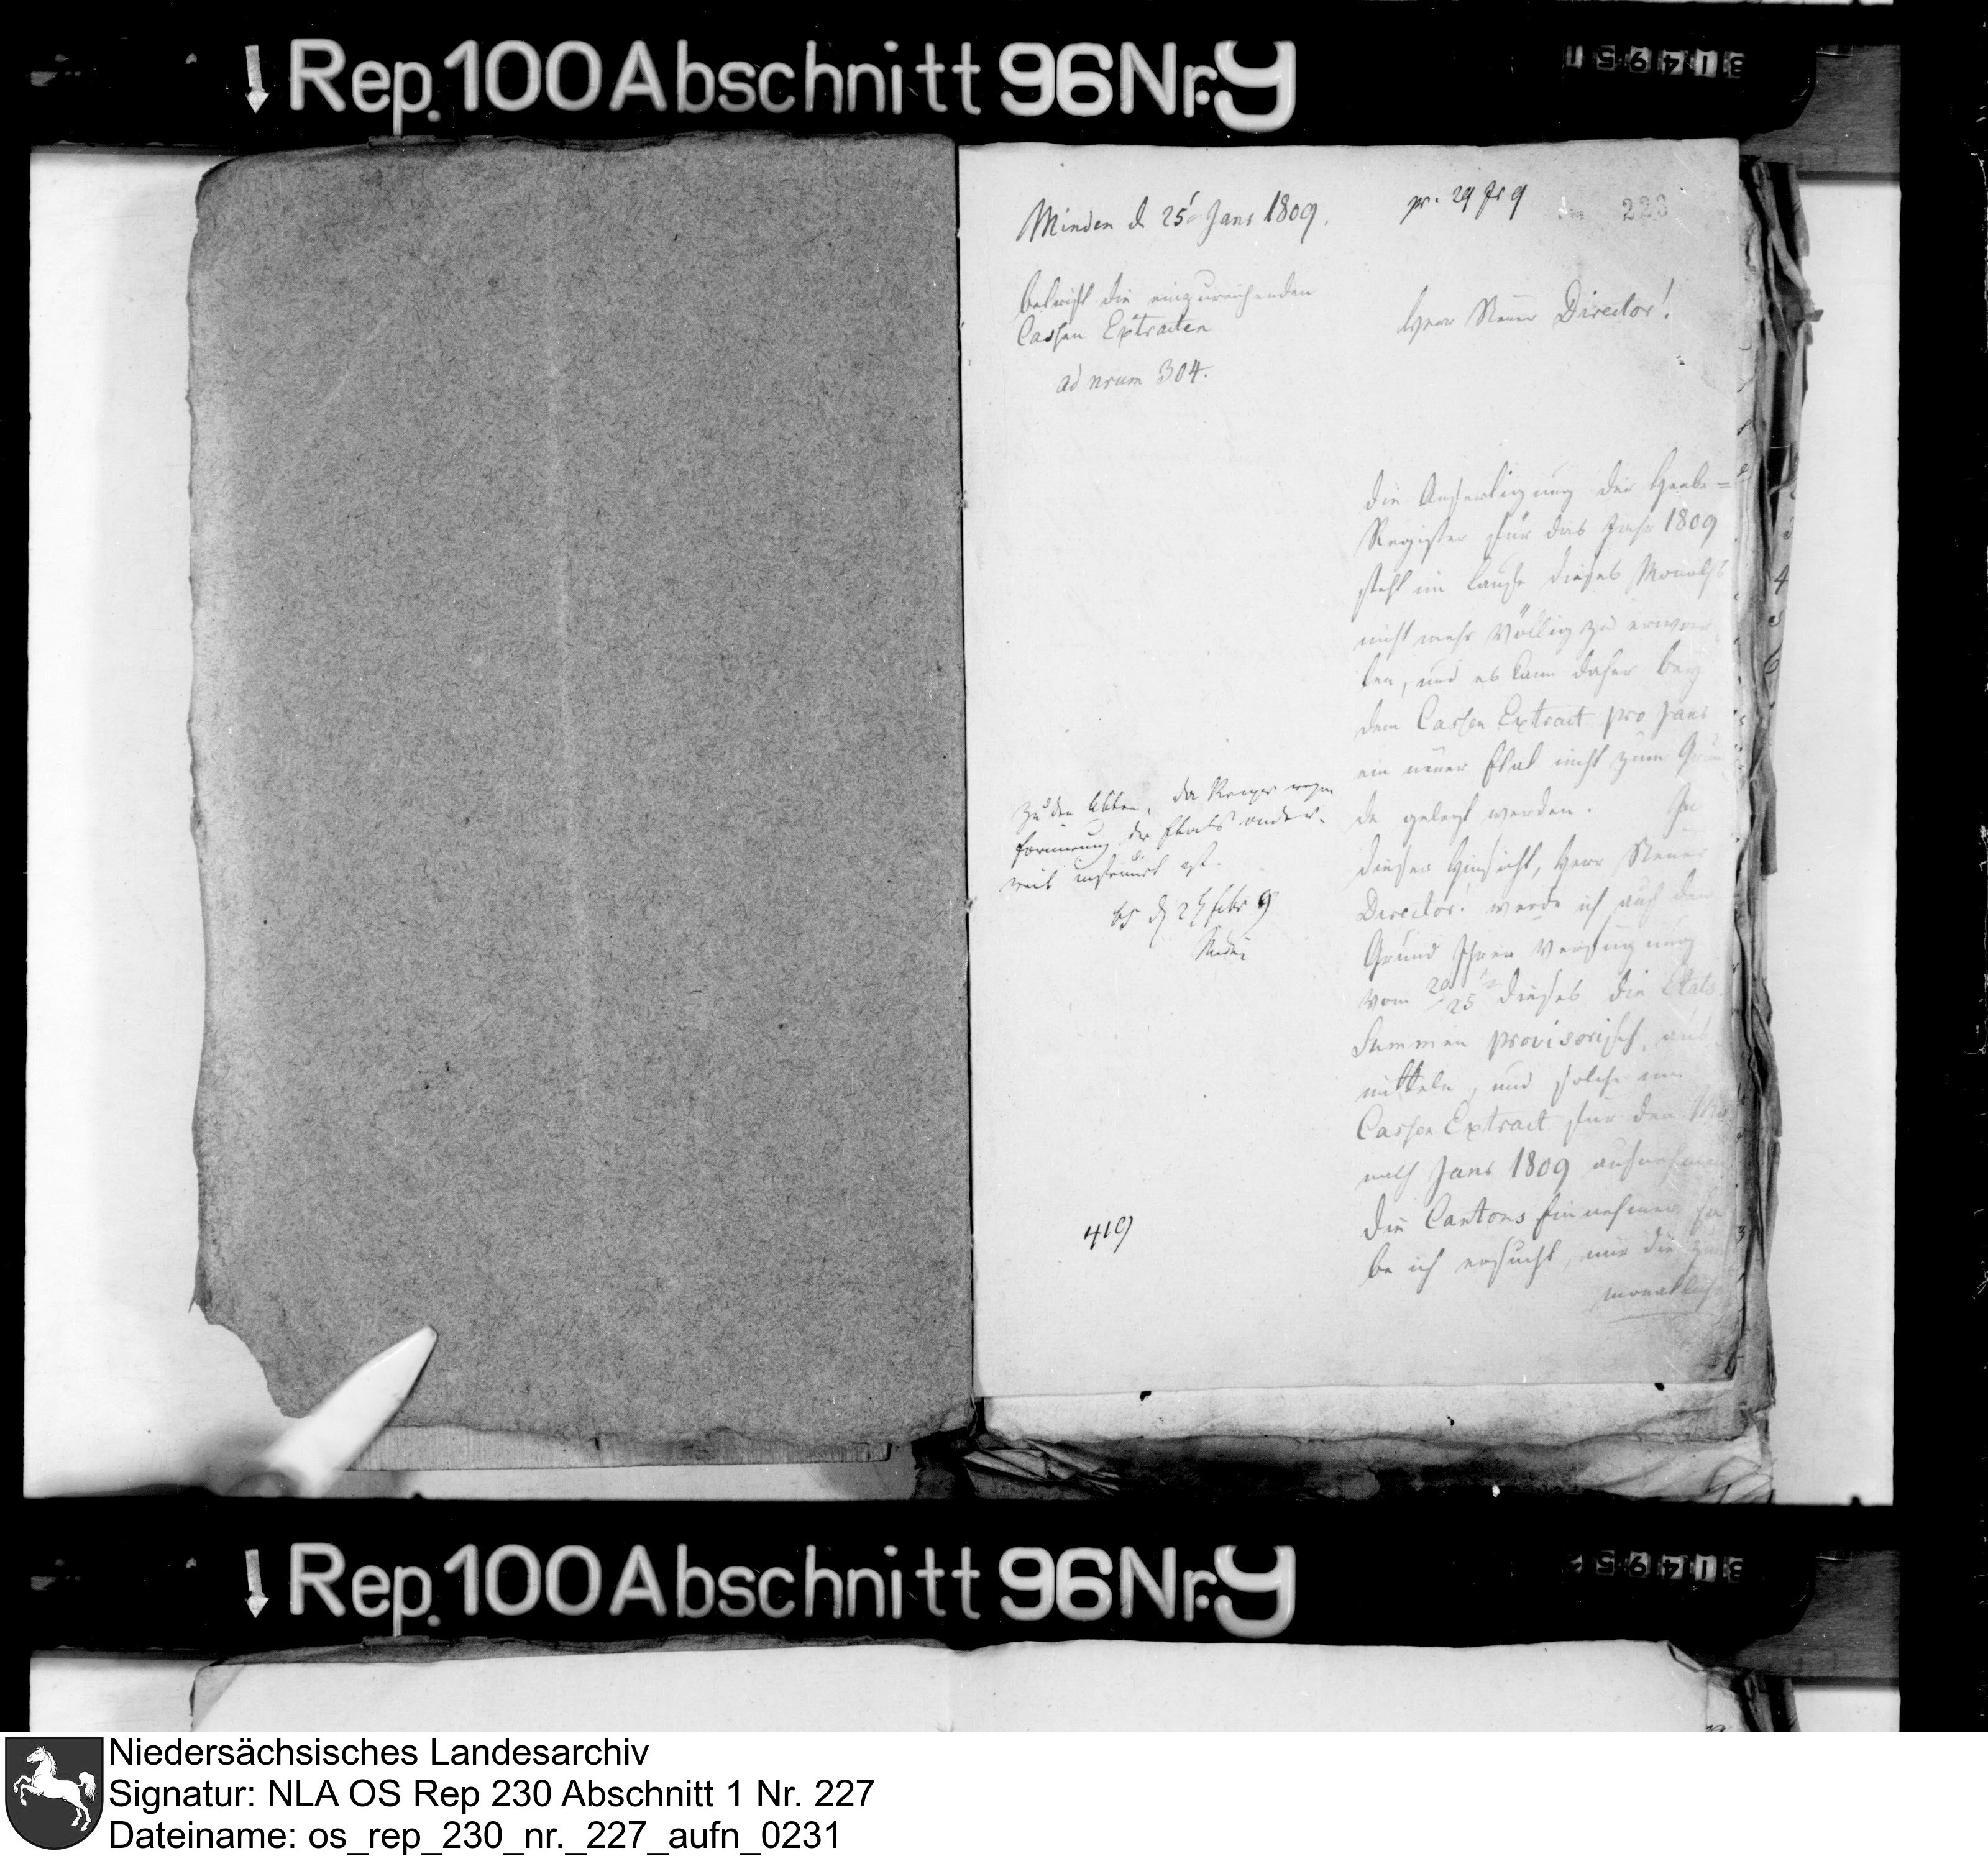 Rep. 100 Abschnitt 96 Nr. 9
31495
Minden d 25t Janr 1809.
pr. 29 Jr 9
223
betrifft die einzureichenden
Cassen Extracten
ad nrum 304.
Herr Steuer Director!
Die Anfertigung der Heebe=
Register für das Jahr 1809
steht im Laufe dieses Monaths
nicht mehr völlig zu erwar
ten, und es kann daher bey
dem Cassen Extract pro Janr
ein neuer Etat nicht zum Grun
de gelegt werden. In
dieser Hinsicht, Herr Steuer
Director! werde ich auf den
Grund Ihrer Verfügung
vom 20/25 dieses die Etats
Summen provisorisch aus
mitteln, und solche im
Cassen Extract für den Mo
nath Janr 1809 aufnehmen
Die Cantons Einnehmer ha
be ich ersucht, mir die zum
monatlich
zu den Akten, da wegen
formirung der Etats ander-
weit instruirt ist.
d 2 Febr 9
419
Rep. 100 Abschnitt 96 Nr. 9
31495
Niedersächsisches Landesarchiv
Signatur: NLA OS Rep 230 Abschnitt 1 Nr. 227
Dateiname: os_rep_230_nr._227_aufn_0231